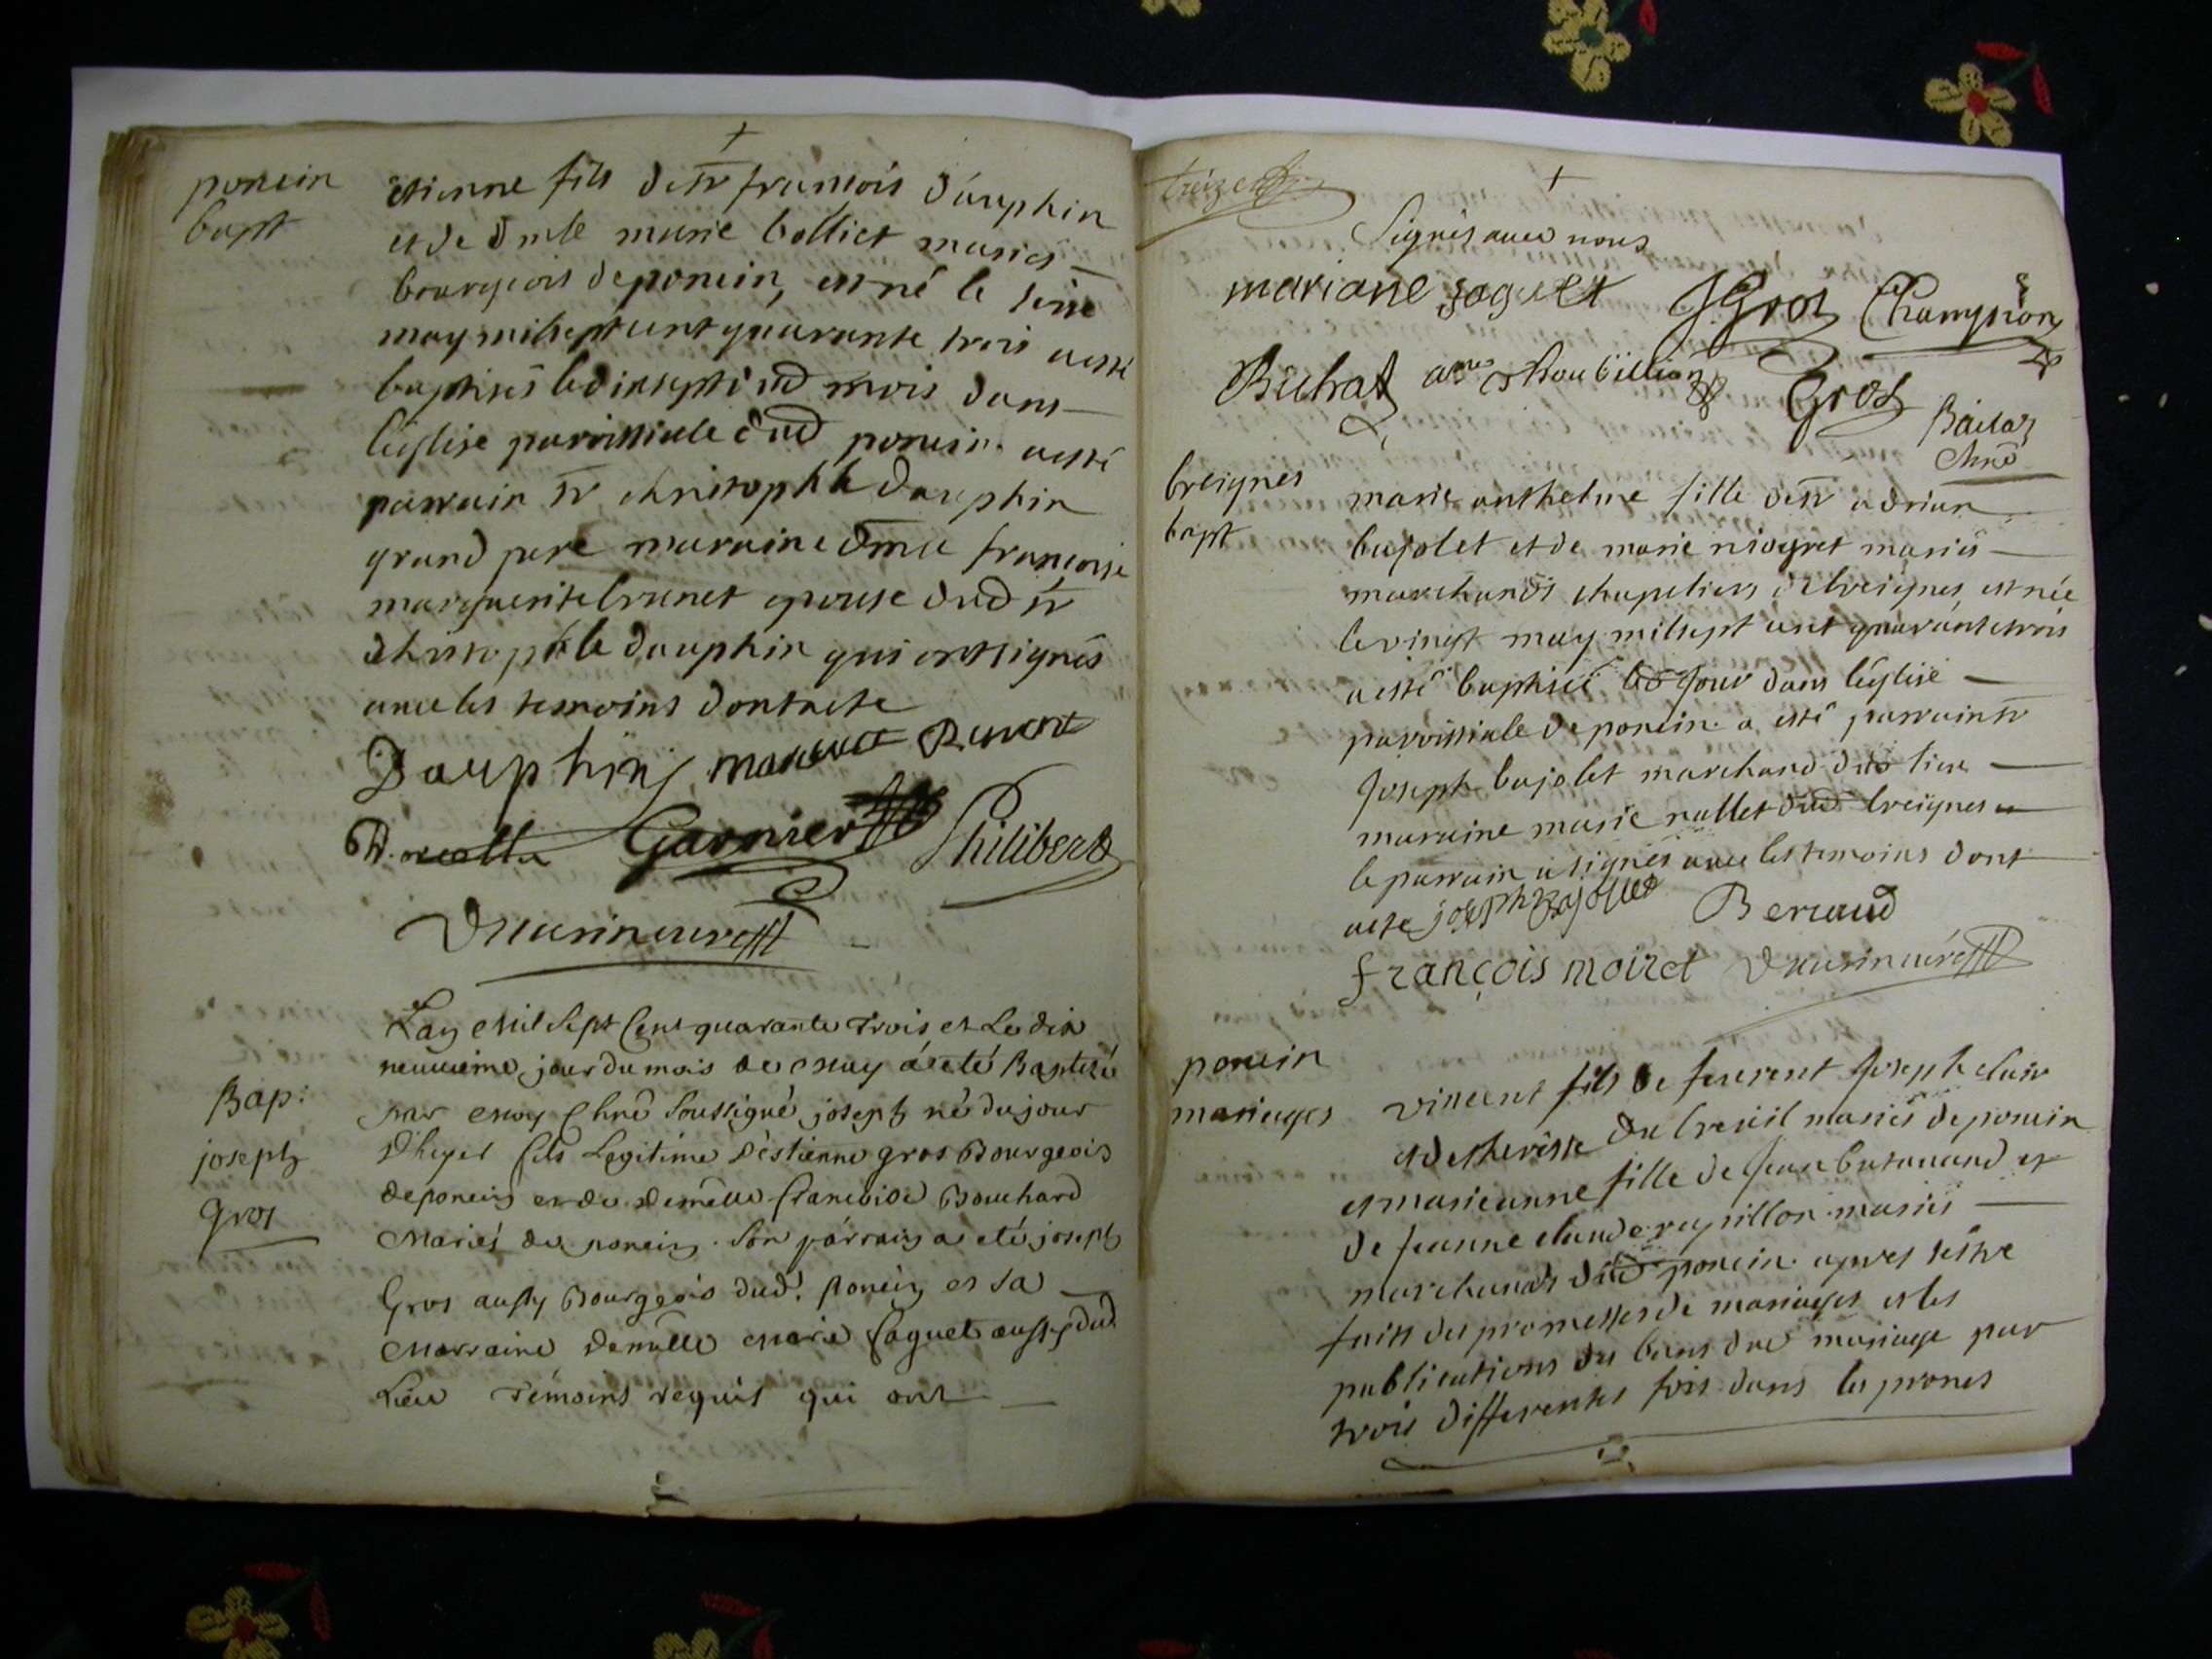 poncin
bapt
etienne fils de sr francois dauphin
et de dmlle marie bolliet mariés
bourgeois de poncin, est né le seise
may mil sept cent quarante trois a esté
baptisés le dix sept dud mois dans
leglise parroissiale dud poncin. a esté
parrain sr christophle dauphin
grand pere maraine dme francoise
marguerite brunet epouse dud sr
christophle dauphin qui ont signés
avec les temoins dont acte
Dauphin
Garnier Philibert
Bap:
joseph
Gros
Lan Mil Sept Cent quarante trois et Le dix
neuvieme jour du mois de May a eté Baptisé
par moy Chne Soussigné joseph né du jour
d'hyer fils Legitime d'estienne gros Bourgeois
de poncin et de demelle francoise Bouchard
Mariés de poncin. Son parrain a eté joseph
Gros aussy Bourgeois dud. poncin et sa
Marraine demelle Marie Saguet aussy dud.
Lieu Témoins requis qui ont
treize
Signés avec nous
mariane saguet JGros Champion
Bichat Gros
Chne
breignes
bapt
marie anthelme fille de sr adrian
bajolet et de marie niogret mariés
marchands chapeliers de breignes est née
le vingt may mil sept cent quarante trois
a esté baptisée led jour dans leglise
parroissiale de poncin a esté parrain sr
joseph bajolet marchand dud lieu
maraine marie nallet dud breignes
le parrain a signés avec les temoins dont
acte joseph Bajollet Beraud
françois moiret
poncin
mariages
vincent fils de feurent joseph clair
et de theresse du breuil mariés de poncin
et marieanne fille de jean et
de jeanne claude mariés
marchands dud poncin apres sestre
faits des promesses de mariages et les
publications des bans dud mariage par
trois differentes fois dans les prones